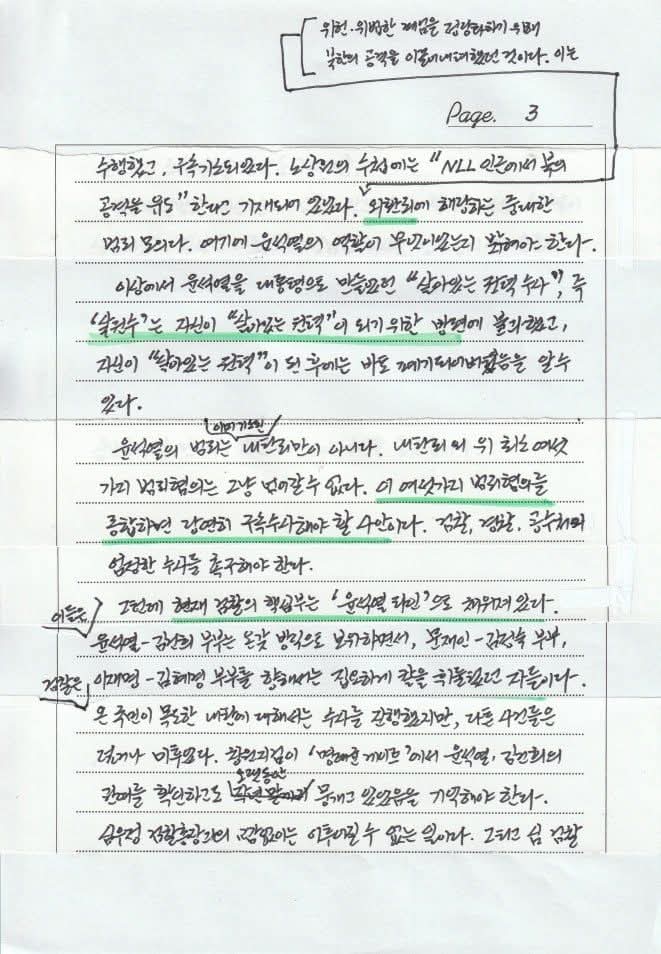 위헌·위법한 계엄을 정당화하기 위해
북한의 공격을 이끌어내려했던 것이다. 이는
Page. 3
수행했고, 구속기소되었다. 노상원의 수첩에는 "NLL 인근에서 북의
공격을 유도"한다고 기재되어 있었다. 외환죄에 해당하는 중대한
범죄 모의다. 여기에 윤석열의 역할이 무엇이었는지 밝혀야 한다.
이상에서 윤석열을 대통령으로 만들었던 "살아있는 권력 수사", 즉
'살권수'는 자신이 "살아있는 권력"이 되기 위한 방편에 불과했고,
자신이 "살아있는 권력"이 된 후에는 바로 폐기되어버렸음을 알 수
있다.
이미 기소된
윤석열의 범죄는 내란죄만이 아니다. 내란죄 외 위 최소 여섯
가지 범죄혐의는 그냥 넘어갈 수 없다. 이 여섯가지 범죄혐의를
종합하면 당연히 구속수사해야 할 사안이다. 검찰, 경찰, 공수처의
엄정한 수사를 촉구해야 한다.
그런데 현재 검찰의 핵심부는 '윤석열 라인'으로 채워져 있다.
이들은
윤석열-김건희 부부는 온갖 방식으로 보위하면서, 문재인-김정숙 부부,
이재명-김혜경 부부를 향해서는 집요하게 칼을 휘둘렀던 자들이다.
검찰은
온 국민이 목도한 내란에 대해서는 수사를 진행했지만, 다른 사건들은
덮거나 미루었다. 창원지검이 '명태균 게이트'에서 윤석열, 김건희의
오랫동안
관여를 확인하고도 뭉개고 있었음을 기억해야 한다.
심우정 검찰총장과의 교감없이는 이루어질 수 없는 일이다. 그리고 심 검찰